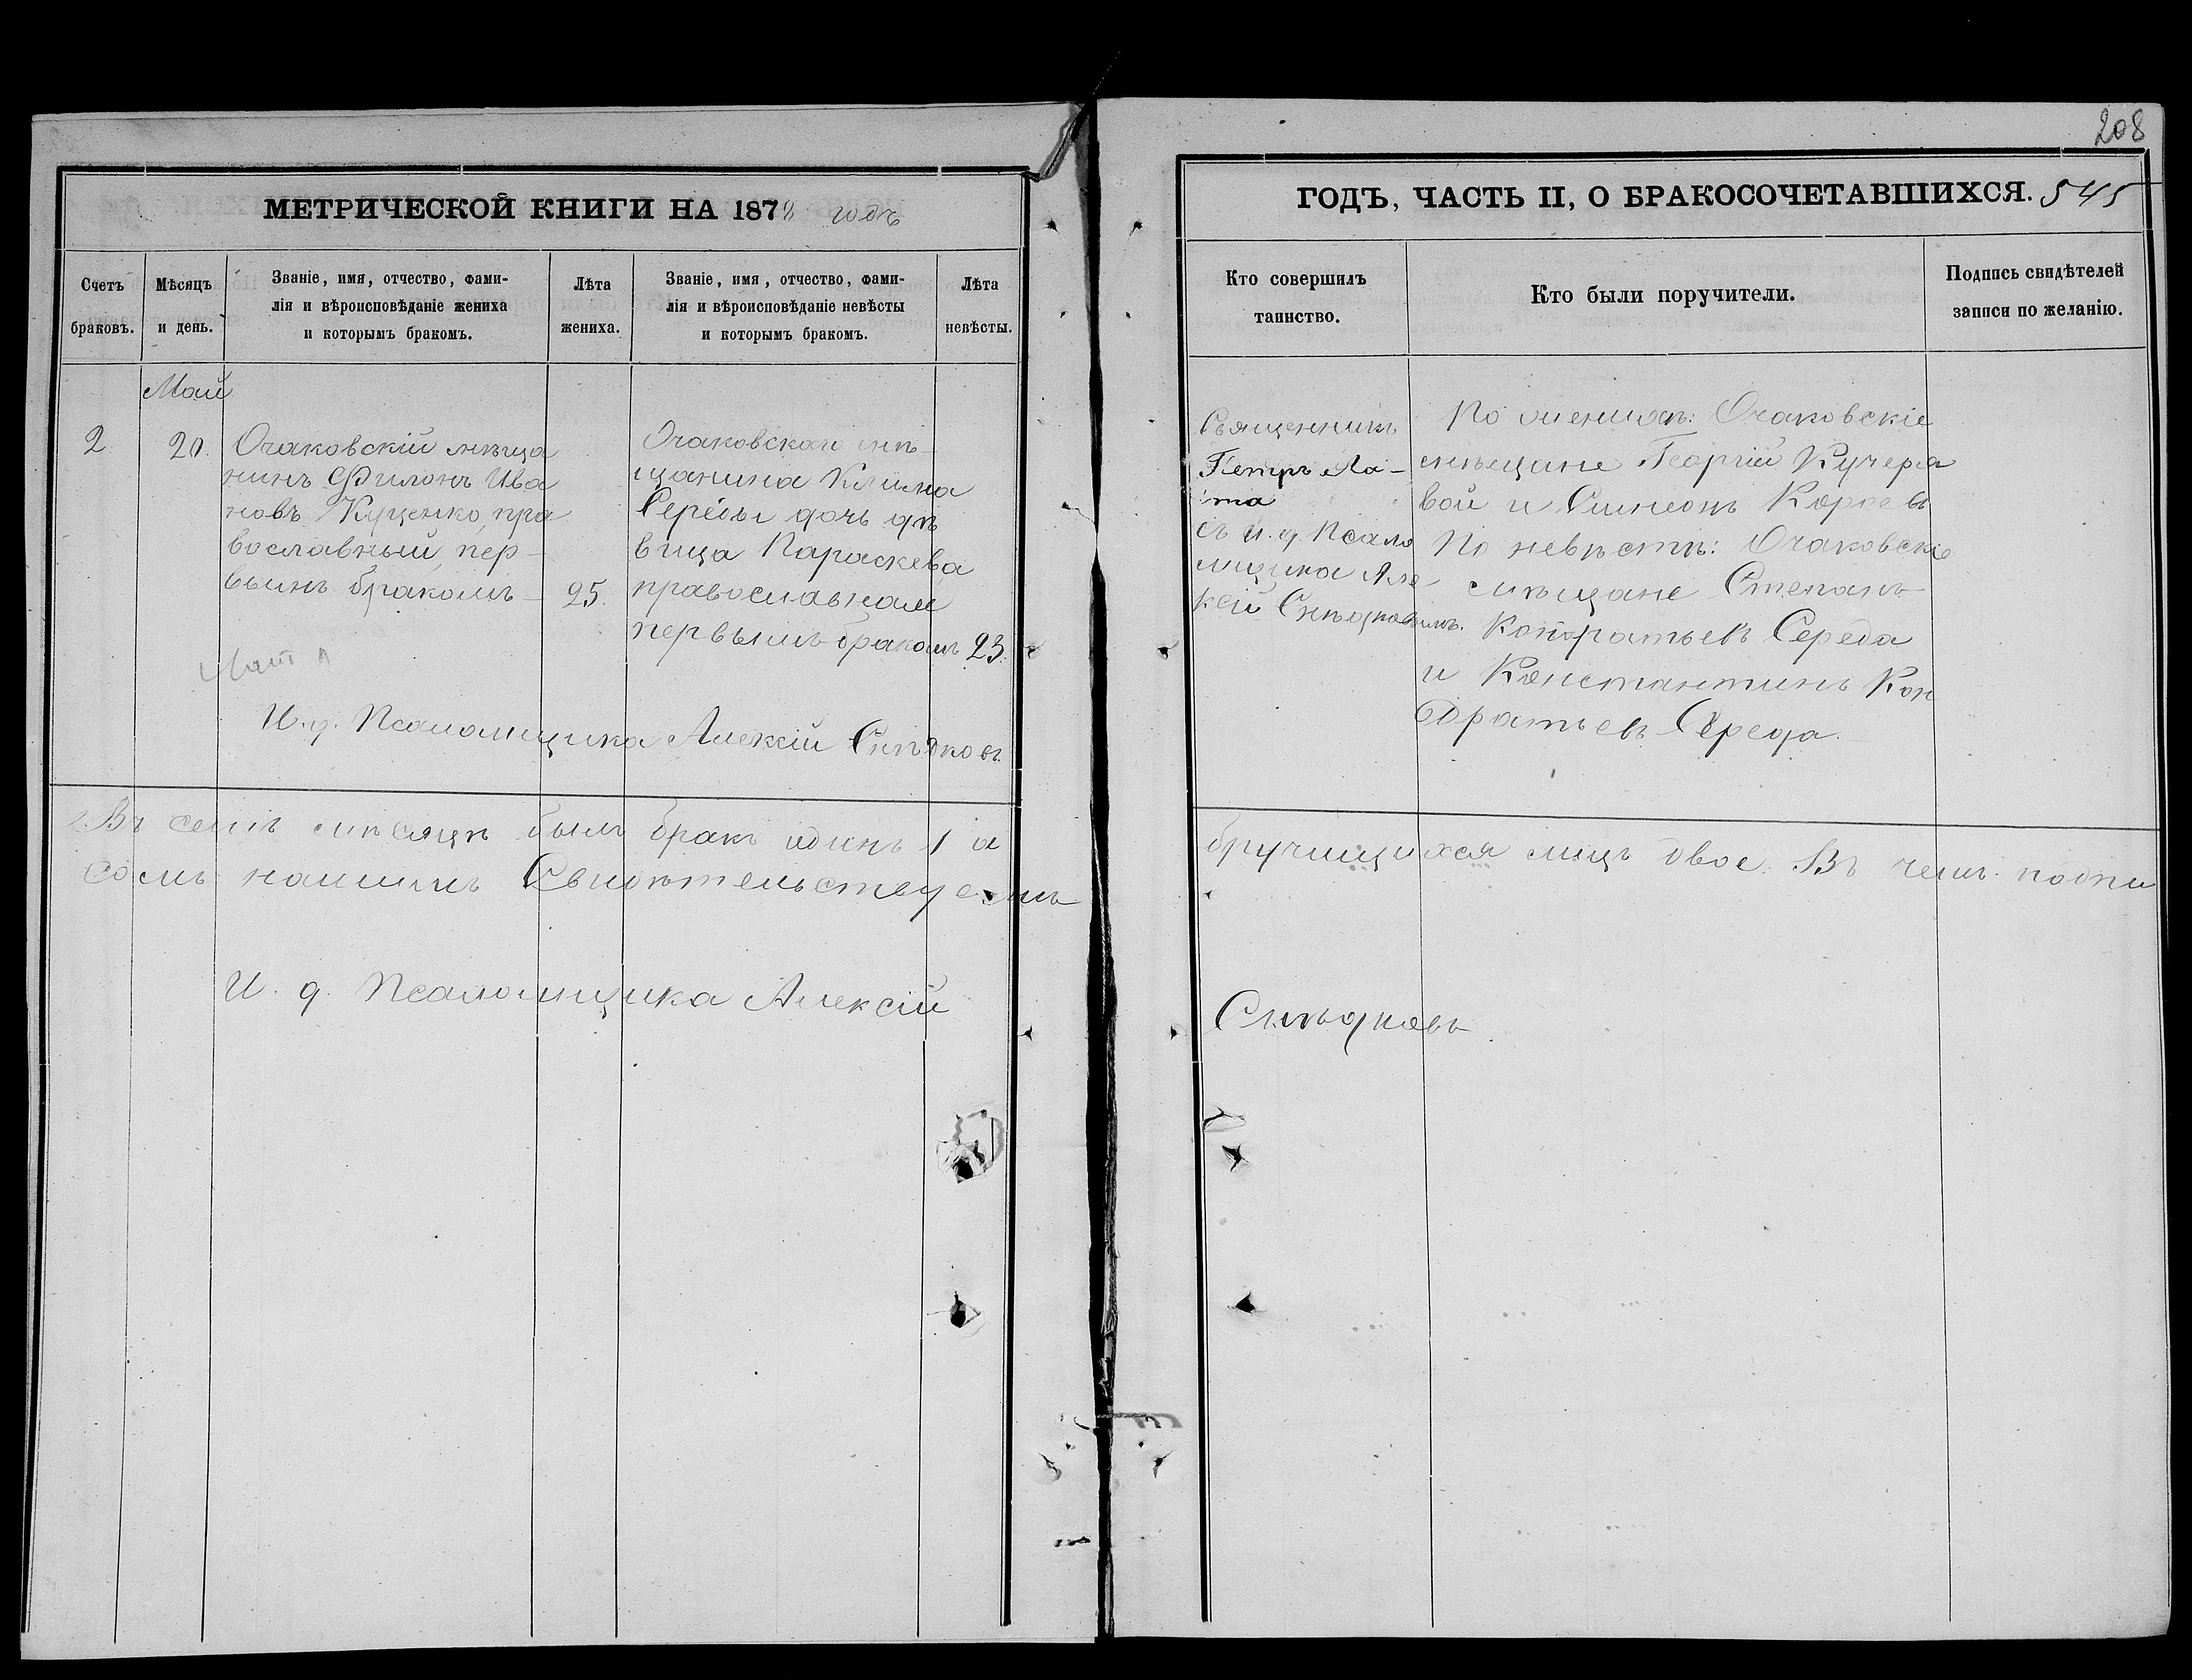 208
МЕТРИЧЕСКОЙ КНИГИ НА 1878 годъ
ГОДЪ, ЧАСТЬ II, О БРАКОСОЧЕТАВШИХСЯ. 545
Счетъ браковъ.
Мѣсяцъ и день.
Званіе, имя, отчество, фами-
лія и вѣроисповѣданіе жениха
и которымъ бракомъ.
Лѣта жениха.
Званіе, имя, отчество, фами-
лія и вѣроисповѣданіе невѣсты
и которымъ бракомъ.
Лѣта невѣсты.
Кто совершилъ
таинство.
Кто были поручители.
Подпись свидѣтелей
записи по желанію.
Май
2
20.
Очаковскій мѣща
нинъ Филонъ Ива
новъ Куценко, пра
вославный, пер-
вымъ бракомъ
25.
Очаковскаго мѣ-
щанина Клима
Середы дочь дѣ
вица Параскева,
православная
первымъ бракомъ
23.
Священникъ
Петръ
съ и. д. Псало
мщика Але
ксій Снѣдковымъ.
По женихѣ: Очаковскіе
мѣщане Георгій Кучеря
вой и Симеонъ
По невѣстѣ: Очаковскіе
мѣщане Степанъ
Кондратьевъ Середа
и Константинъ Кон
дратьевъ Середа.
И. д. Псаломщика Алексій Снѣдковъ
Въ семъ мѣсяцѣ былъ бракъ одинъ 1 а
бручищихся лицъ двое. Въ чемъ подпи
сомъ нашимъ Свидѣтельствуемъ
И. д. Псаломщика Алексій
Снѣдковъ